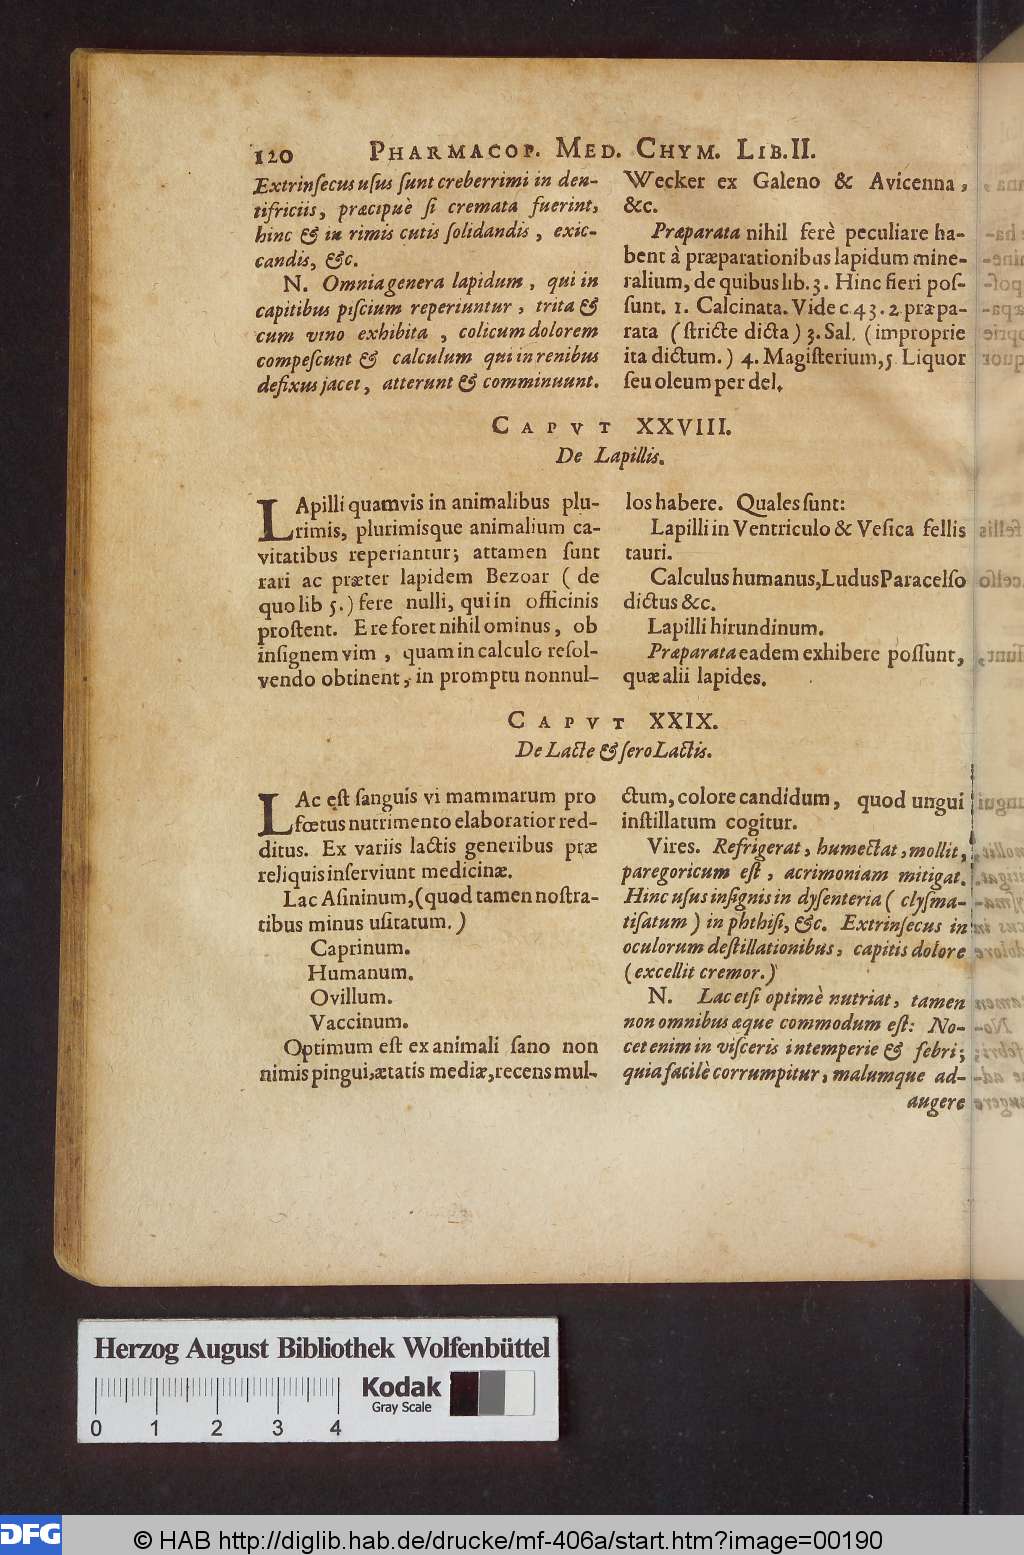 120 PHARMACOP. MED. CHYM. LIB. II.
Extrinſecus uſus ſunt creberrimi in den-
tifriciis, præcipuè ſi cremata fuerint,
hinc & in rimis cutis ſolidandis, exic-
candis, &c.
N. Omnia genera lapidum, qui in
capitibus piſcium reperiuntur, trita &
cum vino exhibita, colicum dolorem
compeſcunt & calculum qui in renibus
defixus jacet, atterunt & comminuunt.
Wecker ex Galeno & Avicenna,
&c.
Præparata nihil ferè peculiare ha-
bent à præparationibus lapidum mine-
ralium, de quibus lib. 3. Hinc fieri poſ-
ſunt. 1. Calcinata. Vide c 43. 2 præpa-
rata (ſtricte dicta) 3. Sal. (improprie
ita dictum.) 4. Magiſterium, 5 Liquor
ſeu oleum per del.
CAPVT XXVIII.
De Lapillis.
LApilli quamvis in animalibus plu-
rimis, plurimisque animalium ca-
vitatibus reperiantur; attamen ſunt
rari ac præter lapidem Bezoar (de
quo lib 5.) fere nulli, qui in officinis
proſtent. E re foret nihilominus, ob
inſignem vim, quam in calculo reſol-
vendo obtinent, in promptu nonnul-
los habere. Quales ſunt:
Lapilli in Ventriculo & Veſica fellis
tauri.
Calculus humanus, Ludus Paracelſo
dictus &c.
Lapilli hirundinum.
Præparata eadem exhibere poſſunt,
quæ alii lapides.
CAPVT XXIX.
De Lacte & ſero Lactis.
LAc eſt ſanguis vi mammarum pro
fœtus nutrimento elaboratior red-
ditus. Ex variis lactis generibus præ
reliquis inſerviunt medicinæ.
Lac Aſininum, (quod tamen noſtra-
tibus minus uſitatum.)
Caprinum.
Humanum.
Ovillum.
Vaccinum.
Optimum eſt ex animali ſano non
nimis pingui, ætatis mediæ, recens mul-
ctum, colore candidum, quod ungui
inſtillatum cogitur.
Vires. Refrigerat, humectat, mollit,
paregoricum eſt, acrimoniam mitigat.
Hinc uſus inſignis in dyſenteria (clyſma-
tiſatum) in phthiſi, &c. Extrinſecus in
oculorum deſtillationibus, capitis dolore
(excellit cremor.)
N. Lac etſi optimè nutriat, tamen
non omnibus æque commodum eſt: No-
cet enim in viſceris intemperie & febri;
quia facilè corrumpitur, malumque ad-
augere
Herzog August Bibliothek Wolfenbüttel
0 1 2 3 4
Kodak
Gray Scale
DFG
© HAB http://diglib.hab.de/drucke/mf-406a/start.htm?image=00190